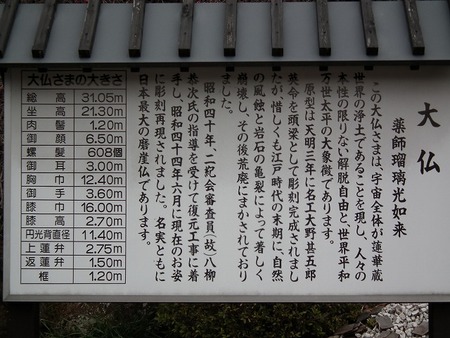 大仏
薬師瑠璃光如来
この大仏さまは、宇宙全体が蓮華蔵
世界の浄土であることを現し、人々の
本性の限りない解脱自由と世界平和
万世太平の大象徴であります。
原型は天明三年に名工大野甚五郎
英令を頭梁として彫刻完成されまし
たが惜しくも江戸時代の末期に、自然
の風蝕と岩石の亀裂によって著しく
崩壊し、その後荒廃にまかされており
ました。
昭和四十年、二紀会審査員、故八柳
恭次氏の指導を受けて復元工事に着
手し、昭和四十四年六月に現在のお姿
に彫刻再現されました。名実ともに
日本最大の磨崖仏であります。
大仏さまの大きさ
総高 31.05m
坐高 21.30m
肉髻 1.20m
御顔 6.50m
螺髪 608個
御耳 3.00m
胸巾 12.40m
御手 3.60m
膝巾 16.00m
膝高 2.70m
円光背直径 11.40m
上蓮弁 2.75m
返蓮弁 1.50m
框 1.20m